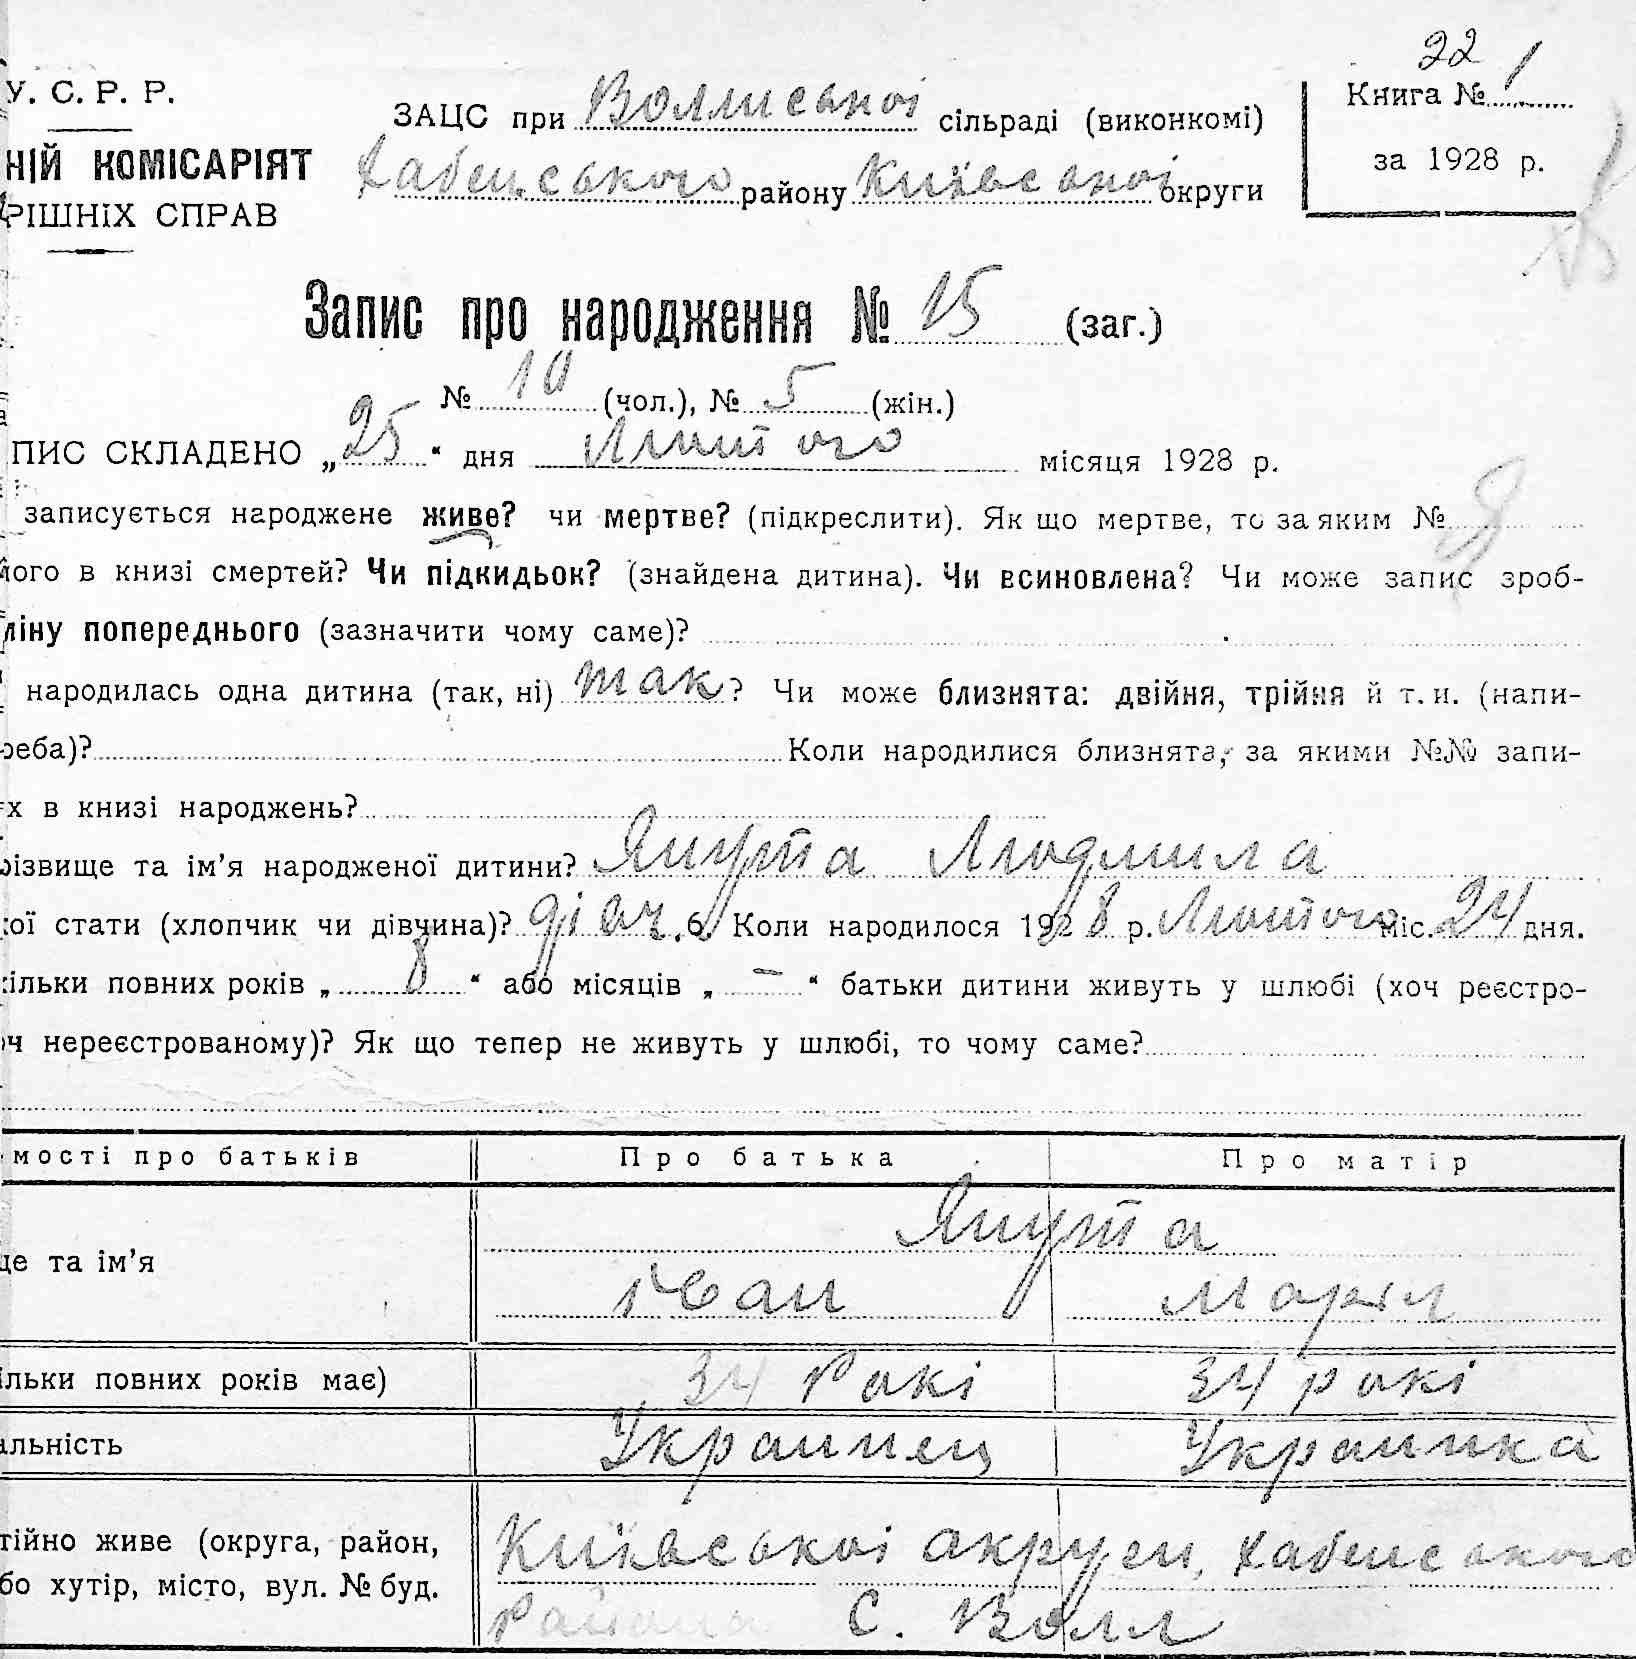 22
У. С. Р. Р.
ЗАЦС при Воллиської сільраді (виконкомі)
Книга № 1
НІЙ КОМІСАРІЯТ
Хабенського району Київської округи
за 1928 р.
РІШНІХ СПРАВ
Запис про народження № 15 (заг.)
№ 10 (чол.), № 5 (жін.)
ПИС СКЛАДЕНО „25“ дня Лютого місяця 1928 р.
записується народжене живе? чи мертве? (підкреслити). Як що мертве, то за яким №
його в книзі смертей? Чи підкидьок? (знайдена дитина). Чи всиновлена? Чи може запис зроб-
ліну попереднього (зазначити чому саме)?
народилась одна дитина (так, ні) так? Чи може близнята: двійня, трійня й т. и. (напи-
реба)? Коли народилися близнята, за якими №№ запи-
х в книзі народжень?
різвище та ім’я народженої дитини? Янута Людмила
кої стати (хлопчик чи дівчина)? дівч. 6. Коли народилося 1928 р. Лютого міс. 24 дня.
кільки повних років „ 8 “ або місяців „ – “ батьки дитини живуть у шлюбі (хоч реєстро-
оч нереєстрованому)? Як що тепер не живуть у шлюбі, то чому саме?
мості про батьків Про батька Про матір
Янута
це та ім’я
Іван Марія
ільки повних років має) 34 рокі 34 рокі
альність Украинец Украинка
тійно живе (округа, район, Київської акруги, Хабенського
бо хутір, місто, вул. № буд.
Района С. Волл